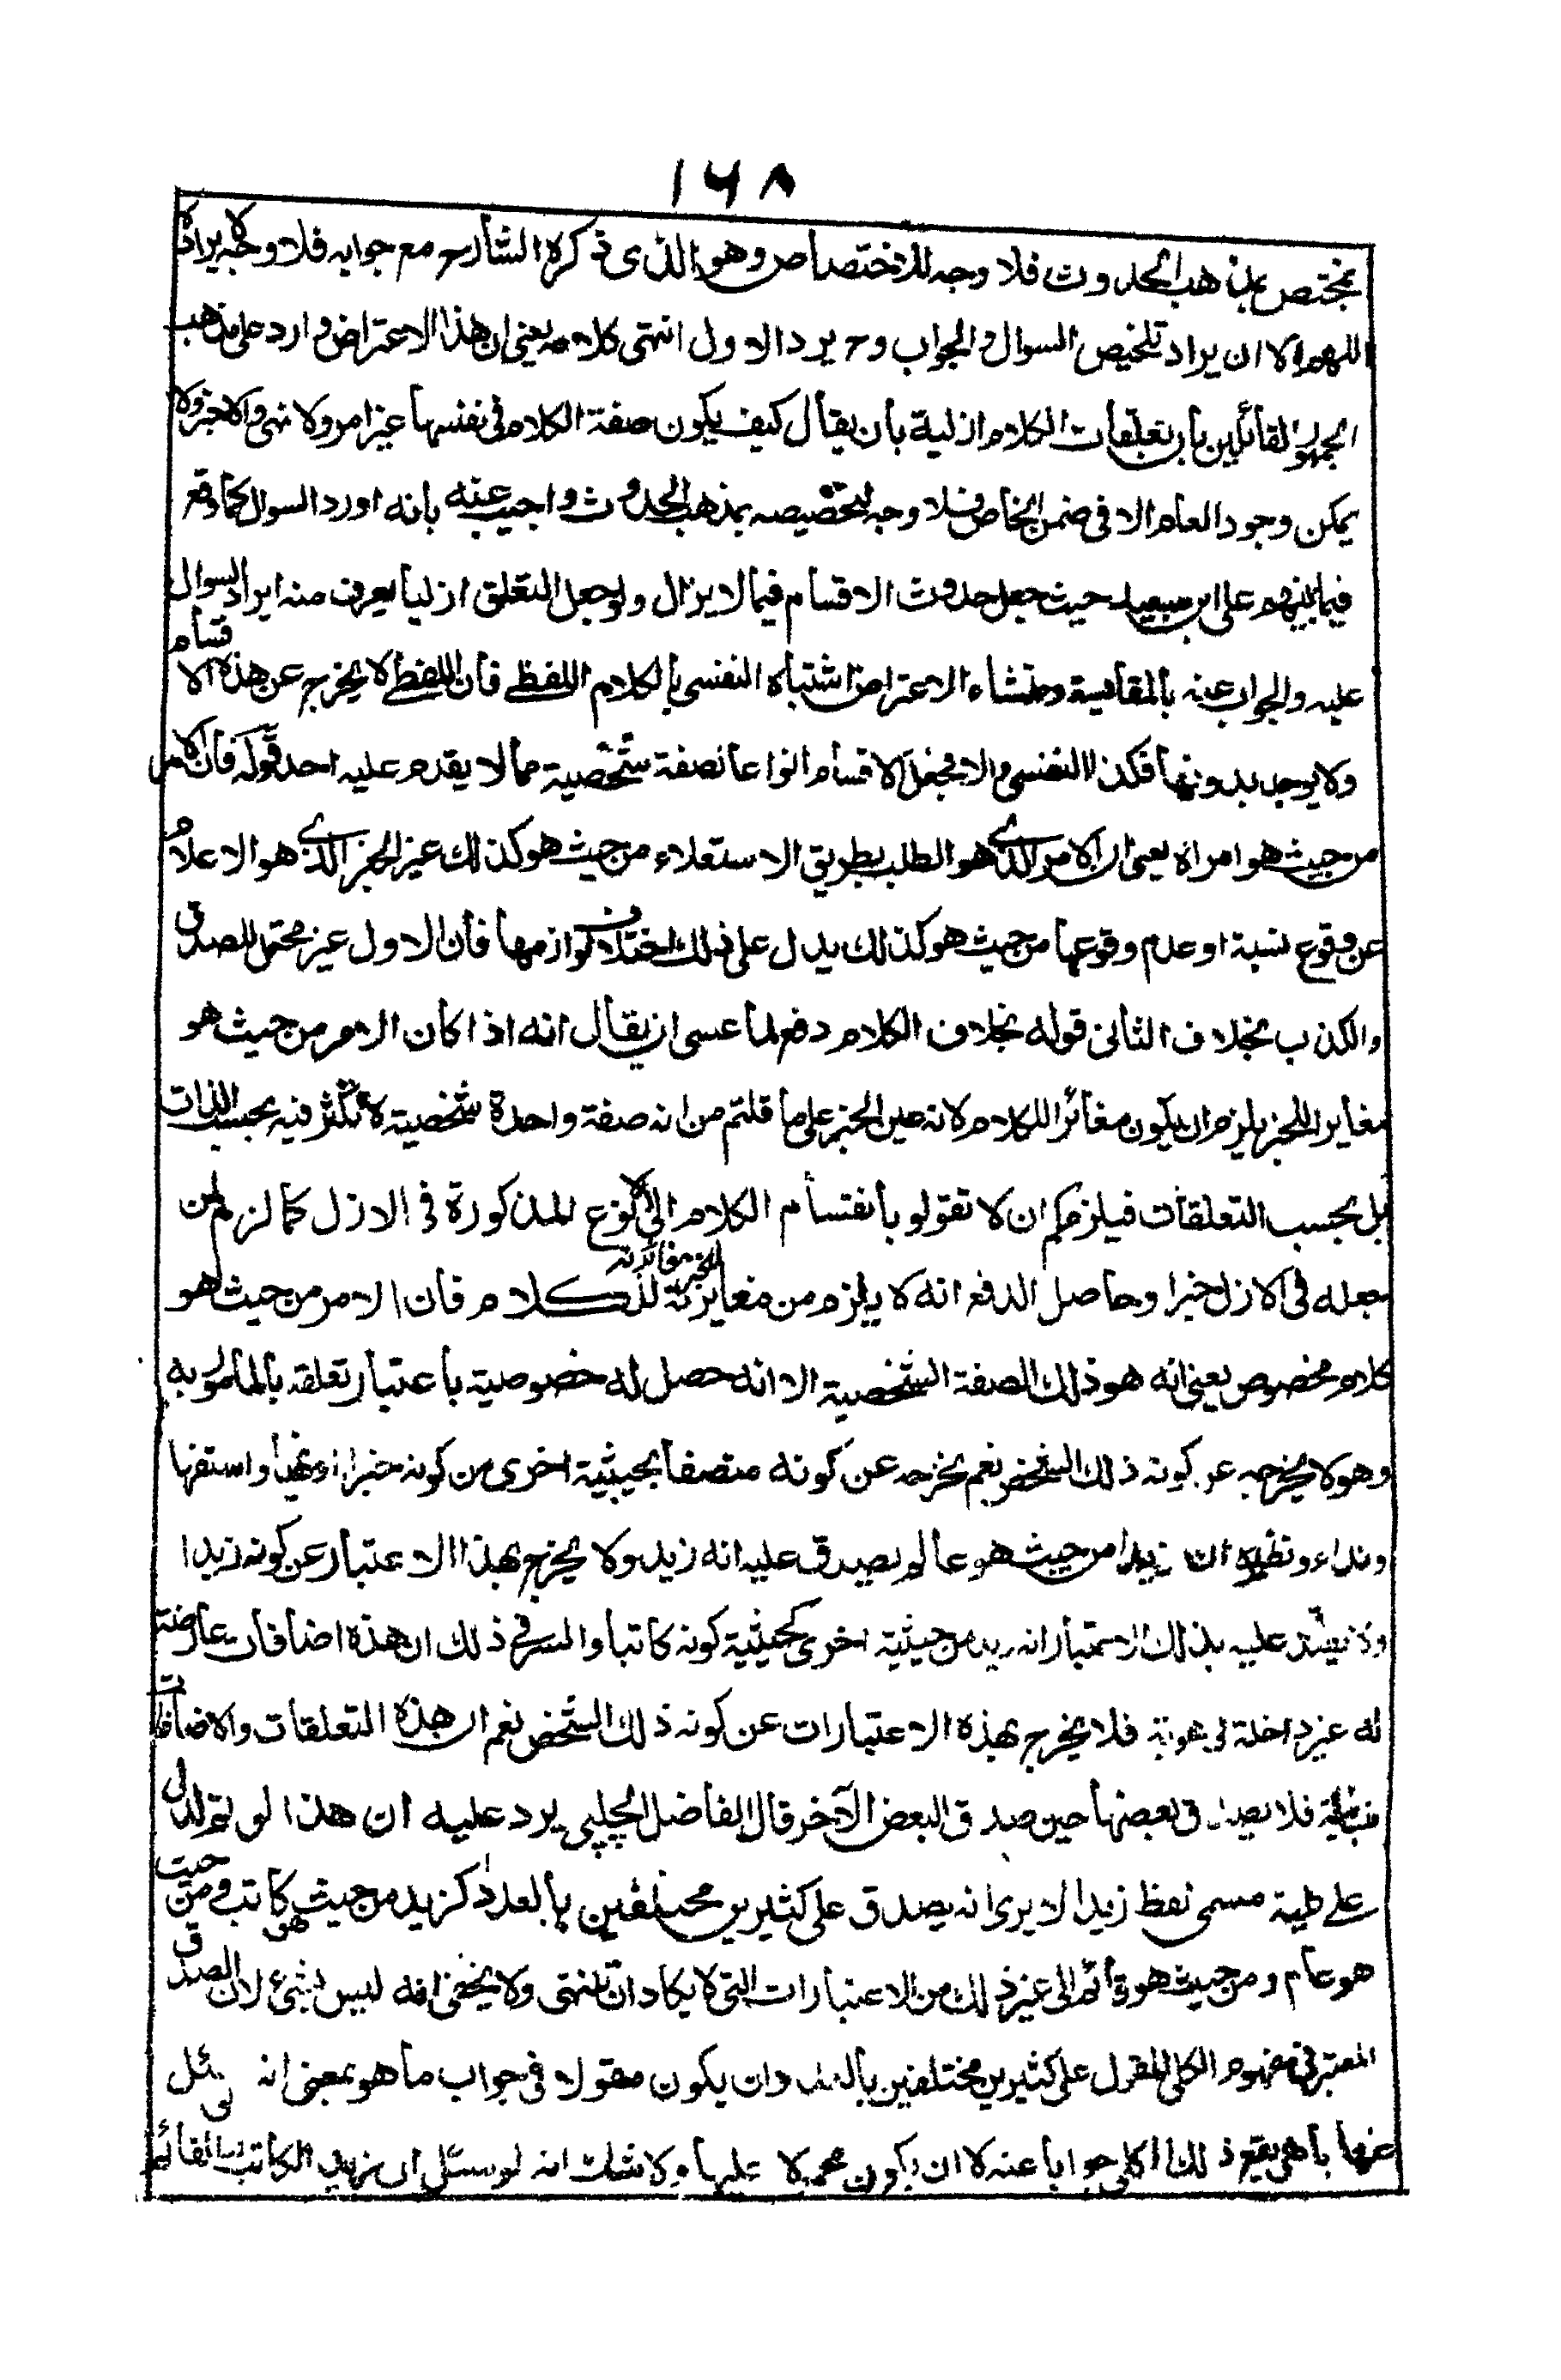 ١٦٨
يختص بمذهب الحدوث فلا وجه للاختصاص وهو الذى ذكره الشارح مع جوابه فلا وجه لايراده
اللهم الا ان يراد تلخيص السوال والجواب وح يرد الاول انتهى كلامه يعنى ان هذا الاعتراض وارد على مذهب
الجمهور القائلين بان تعلقات الكلام ازلية بان يقال كيف يكون صفة الكلام فى نفسها غير امر ولا نهى والاخبر ولا
يمكن وجود العام الا فى ضمن الخاص فلا وجه لتخصيصه بمذهب الحدوث واجيب عنه بانه اورد السوال كما وقع
فيما بينهم على ابن سعيد حيث جعل حدوث الاقسام فيما لا يزال ولو جعل التعلق ازليا يعرف منه ايراد السوال
عليه والجواب عنه بالمقايسة ومنشاء الاعتراض اشتباه النفسى بالكلام اللفظے فان اللفظے لا يخرج عن هذه الاقسام
ولا يوجد بدونها فكذا النفسى والا فجعل الاقسام انواعا لصفة شخصية مما لا يقدم عليه احد قوله فان الامر
من حيث هو امر اه يعنى ان الامر الذے هو الطلب بطريق الاستعلاء من حيث هو كذلك غير الخبر الذے هو الاعلام
عن وقوع نسبة او عدم وقوعها من حيث هو كذلك يدل على ذلك اختلاف لوازمها فان الاول غير محتمل للصدق
والكذب بخلاف الثانى قوله بخلاف الكلام دفع لما عسى ان يقال انه اذا كان الامر من حيث هو
مغاير اللخبر يلزم ان يكون مغائرا للكلام لانه عين الخبر على ما قلتم من انه صفة واحدة شخصية لا تكثر فيه بحسب الذات
بل بحسب التعلقات فيلزمكم ان لا تقولو بانقسام الكلام الى الانواع المذكورة فى الازل كما لزم لمن
جعله فى الازل خبرا وحاصل الدفع انه لا يلزم من مغايرته للخبر مغائرته للكلام فان الامر من حيث هو
كلام مخصوص يعنى انه هو ذلك الصفة الشخصية الا انه حصل له خصوصية باعتبار تعلقه بالمامور به
وهو لا يخرجه عن كونه ذلك الشخص نعم يخرجه عن كونه متصفا بحيثية اخرى من كونه خبرا او نهيا واستفها
ونداء ونظيره ان زيدا من حيث هو عالم يصدق عليه انه زيد ولا يخرج بهذا الاعتبار عن كونه زيدا
ولا يصدق عليه بذلك الاعتبار انه زيد من حيثية اخرى كحيثية كونه كاتبا والسر فى ذلك ان هذه اضافات عارضة
له غير داخلة فى هويته فلا يخرج بهذه الاعتبارات عن كونه ذلك الشخص نعم ان هذه التعلقات والاضافات
متبائنة فلا يصدق بعضها حين صدق البعض الآخر قال الفاضل الچلپى يرد عليه ان هذا لو تم لدل
علے كلية مسمى لفظ زيد الا يرى انه يصدق على كثيرين مختلفين بالعدد كزيد من حيث هو كاتب ومن حيث
هو عام ومن حيث هو قائم الى غير ذلك من الاعتبارات التى لا يكاد ان تنتهى ولا يخفى انه ليس بشئ لان الصدق
المعتبر فى مفهوم الكلى المقول على كثيرين مختلفين بالعدد ان يكون مقولا فى جواب ما هو بمعنى انه لو سئل
عنها بما هى يقع ذلك الكلى جوابا عنه لا ان يكون محمولا عليها ولا شك انه لو سئل ان زيد الكاتب القائم